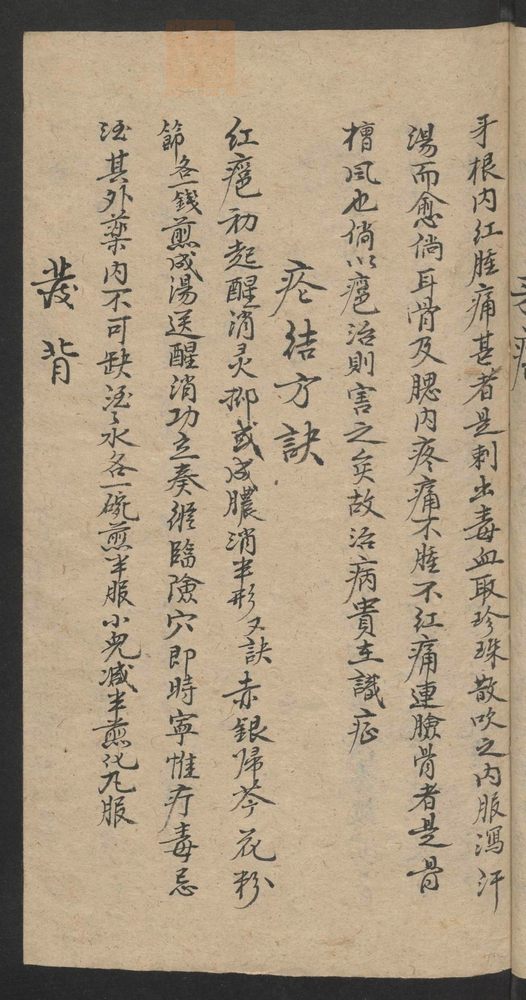 牙根内红腫痛甚者是刺出毒血取珍珠散吹之内服瀉汗
湯而愈倘耳骨及腮内疼痛不腫不红痛連臉骨者是骨
槽风也倘以癰治則害之矣故治病貴在識症
疮结方訣
红癰初起醒消灵抑或成膿消半形又訣赤銀歸芩花粉
節各一錢煎成湯送醒消功立奏縱臨險穴即時寧惟疔毒忌
酒其外藥内不可缺酒之水各一碗煎半服小兒减半煎化九服
發背